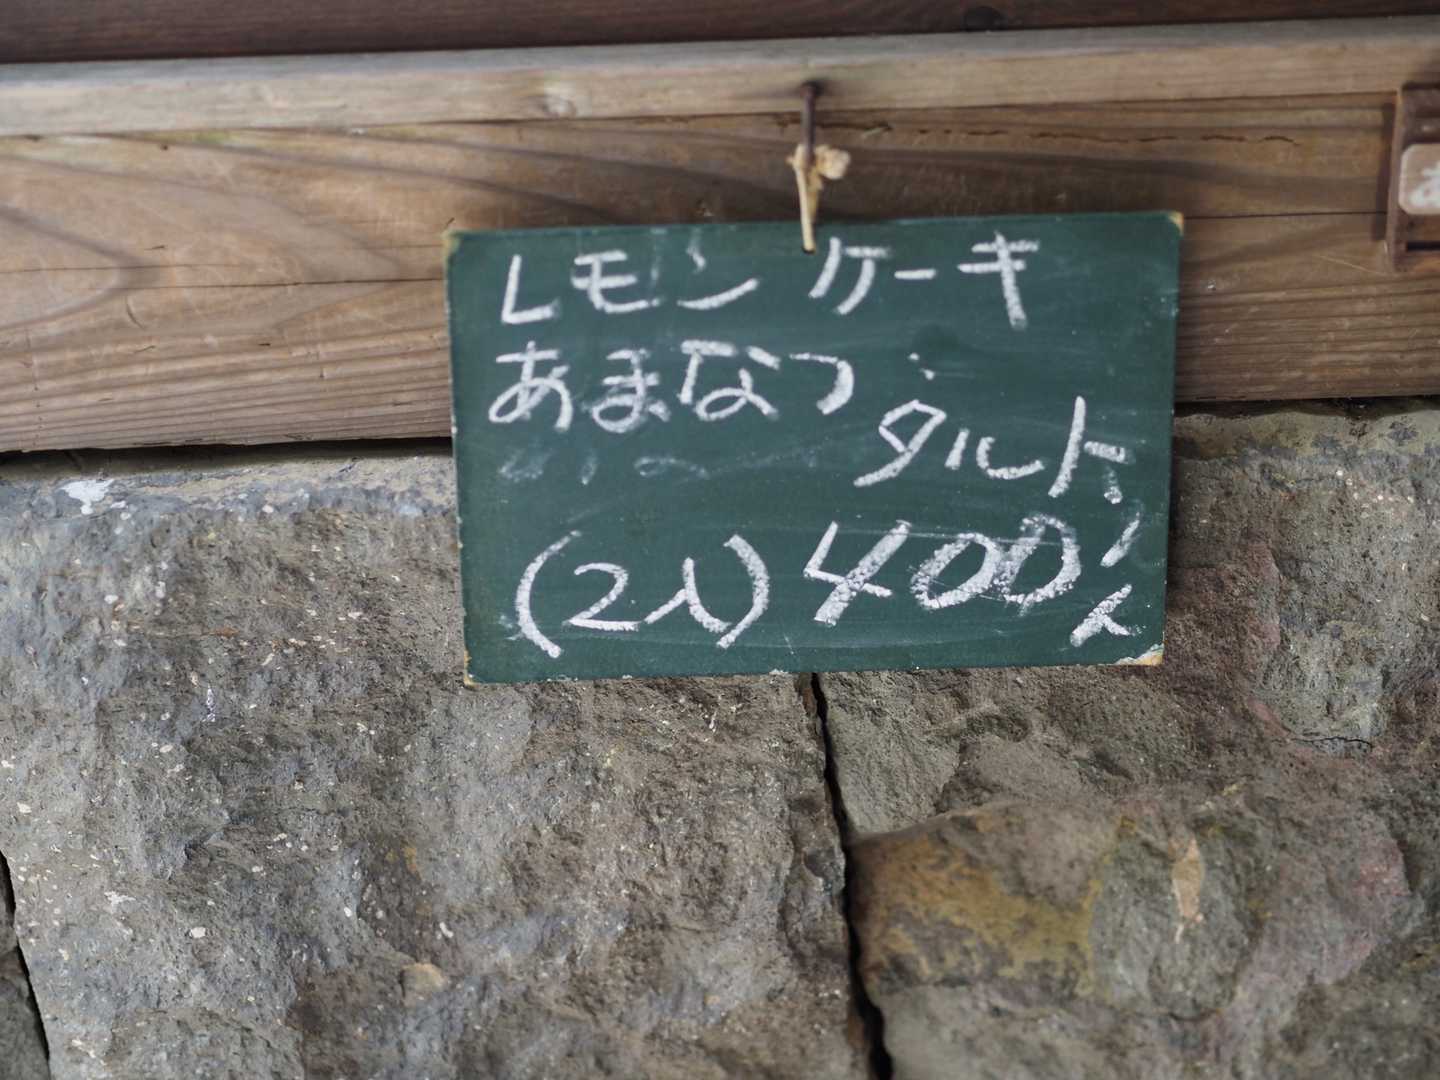 レモンケーキ
あまなつ
タルト
(2人) 400